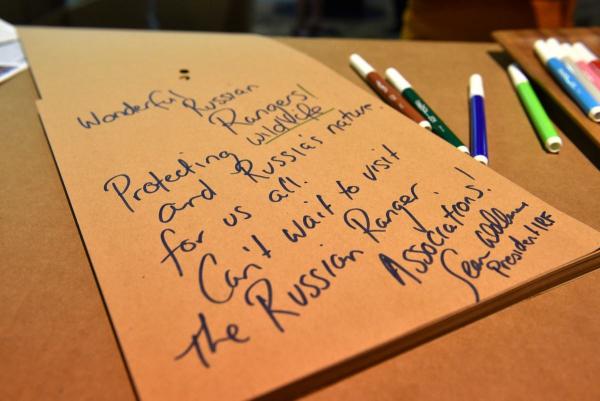 Wonderful Russian
Rangers!
wildlife
Protecting
and Russia's nature.
for us all.
Can't wait to visit
the Russian Ranger
Associations!
Sean Willmore
President IRF